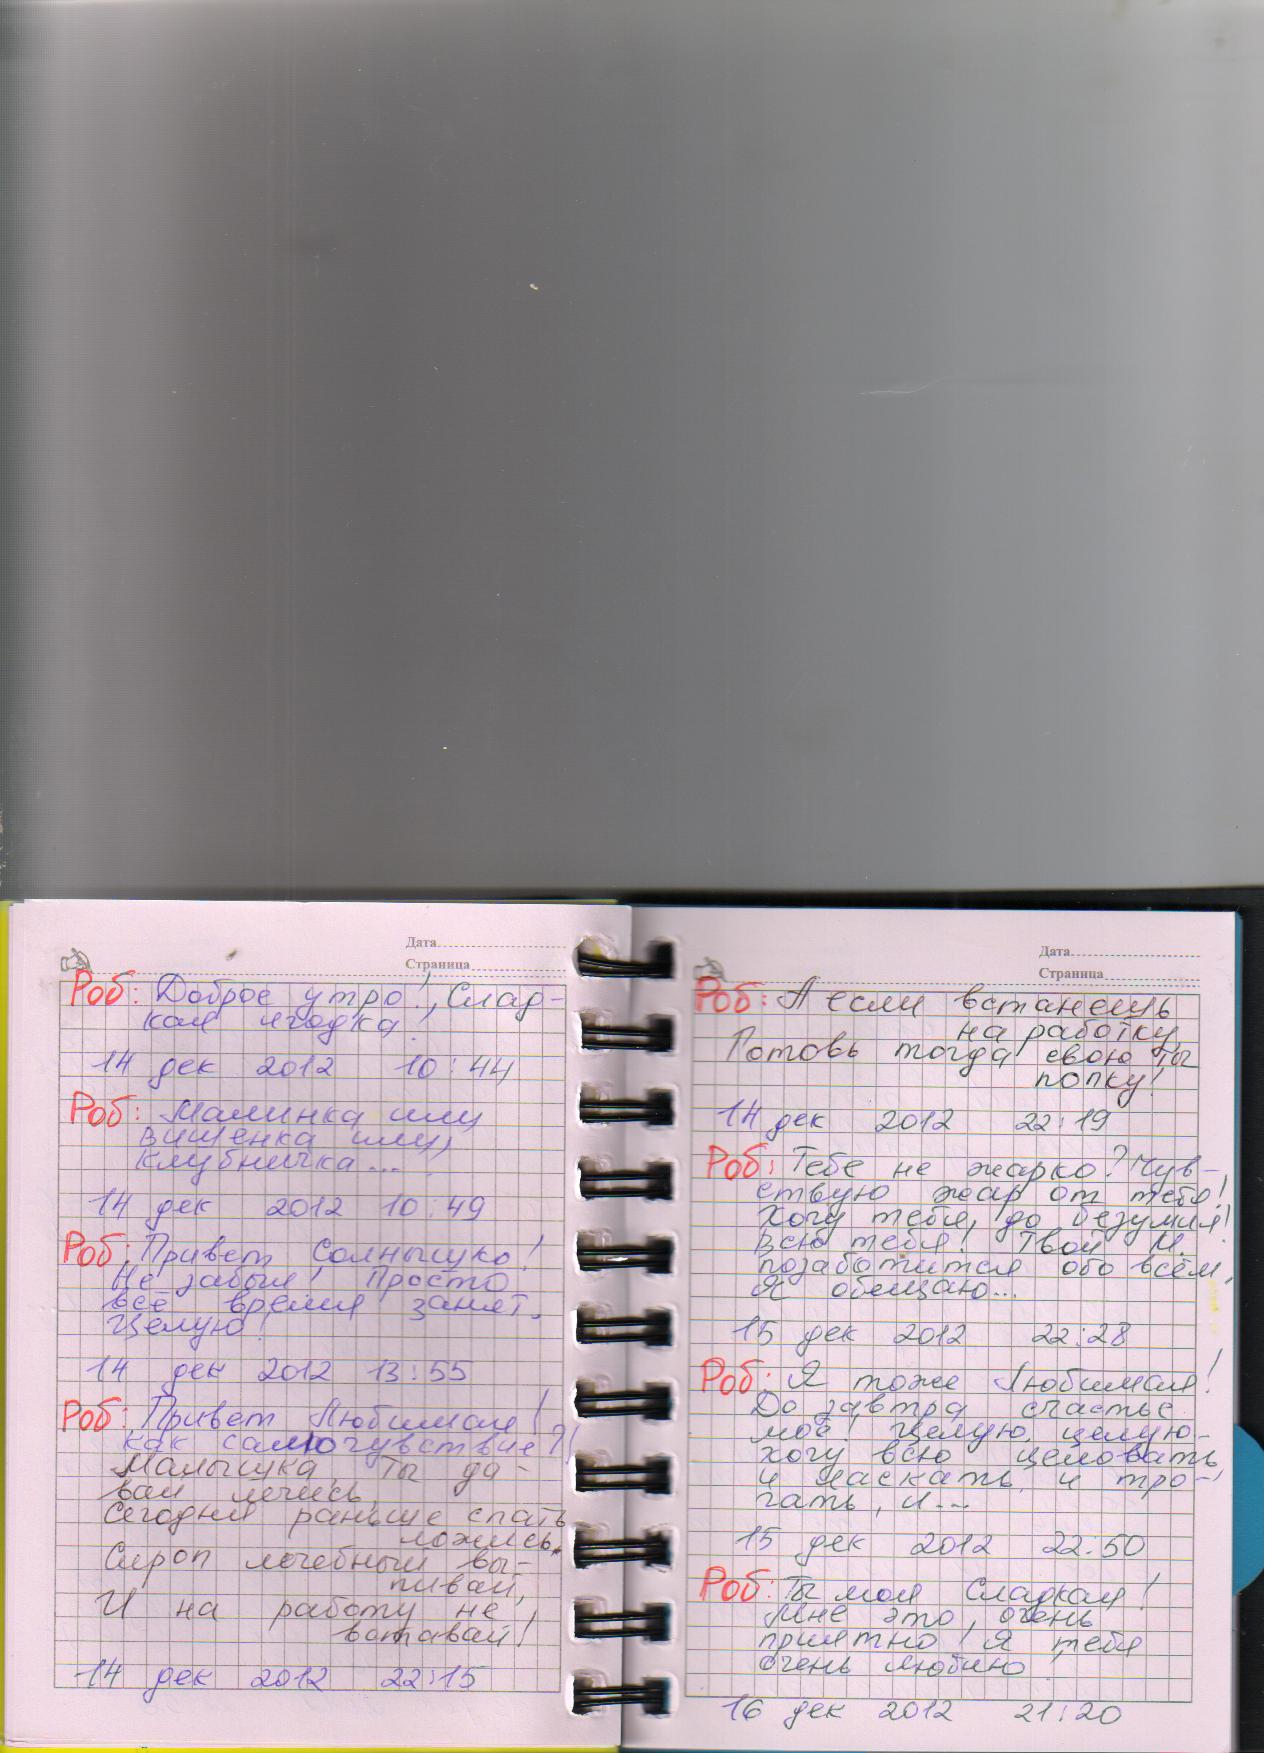 Дата
Страница
Роб: Доброе утро!, Слад-
кая ягодка!
14 дек 2012 10:44
Роб: Малинка или
вишенка или,
клубничка...
14 дек 2012 10:49
Роб: Привет Солнышко!
Не забыл! Просто
всё время занят.
Целую!
14 дек 2012 13:55
Роб: Привет Любимая!
как самочувствие?!
Малышка, ты да-
вай лечись,
Сегодня раньше спать
ложись.
Сироп лечебный вы-
пивай,
И на работу не
вставай!
14 дек 2012 22:15
Дата
Страница
Роб: А если встанешь
на работку,
Готовь тогда свою ты
попку!
14 дек 2012 22:19
Роб: Тебе не жарко? Чув-
ствую жар от тебя!
Хочу тебя, до безумия!
Всю тебя! Твой М.
позаботится обо всём,
Я обещаю...
15 дек 2012 22:28
Роб: Я тоже Любимая!
До завтра счастье
моё! Целую, целую.
хочу всю целовать
и ласкать, и тро-
гать, и...
15 дек 2012 22:50
Роб: Ты моя Сладкая!
Мне это, очень
приятно! Я тебя
очень люблю
16 дек 2012 21:20